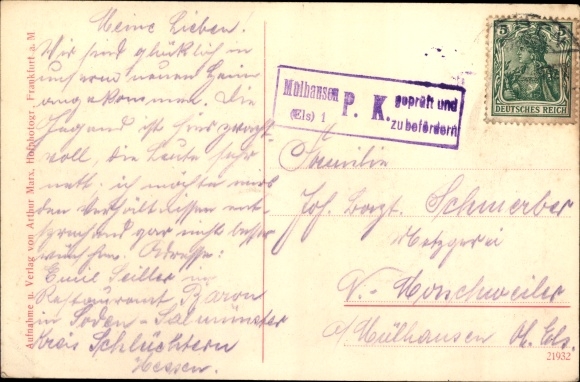 Meine Lieben!
Wir sind glücklich in
unserm neuen Heim
angekommen. Die
Jugend ist hier
voll, die Leute sehr
nett; ich möchte mirs
den Verhältnissen ent-
sprechend gar nicht besser
wünschen. Adresse:
Emil Seiller im
Restaurant Baron
in Soden-Salmünster
Kreis Schlüchtern
Hessen.
Aufnahme u. Verlag von Arthur Marx, Hofphotogr., Frankfurt a. M
Mülhausen
(Els) 1
P. K.
geprüft und
zu befördern
5
DEUTSCHES REICH
Familie
Jos. Schmerber
Metzgerei
N.-Morschweiler
b/Mülhausen Ob. Els.
21932